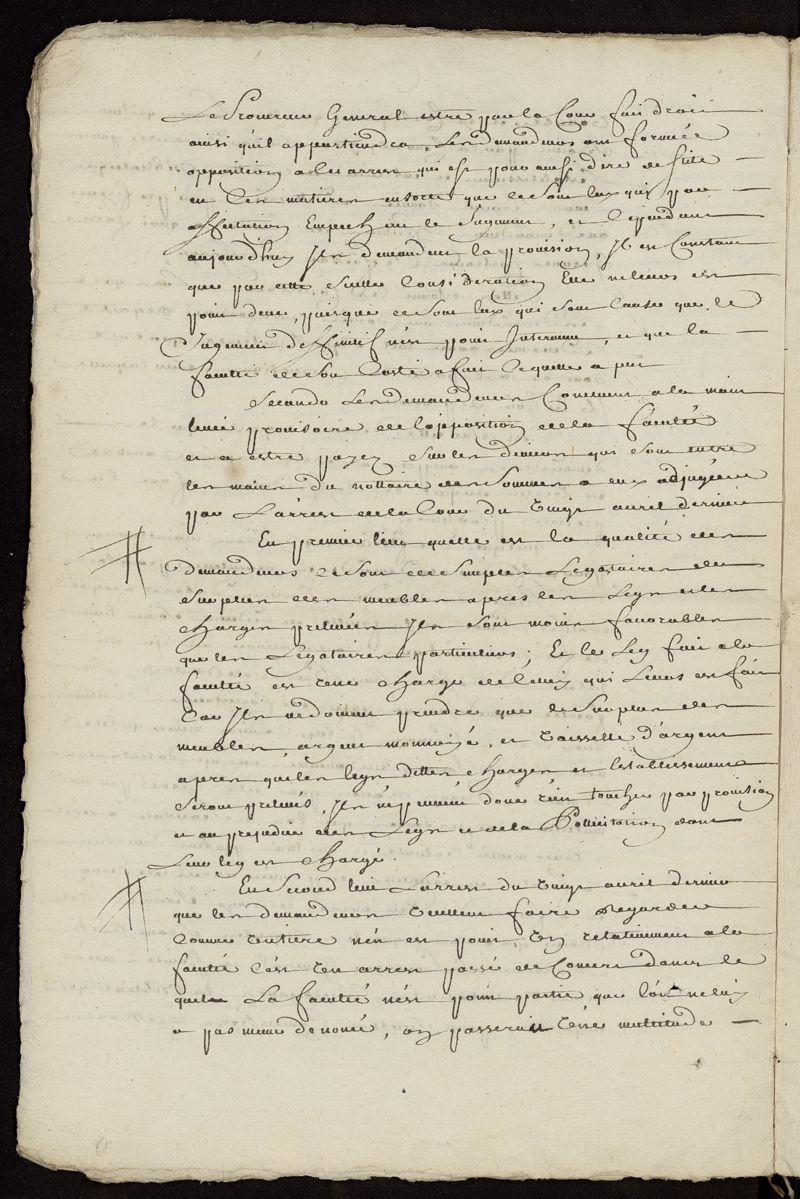 Le Procureur General estre par la Cour fait droit
ainsi quil appartiendra, Les demandeurs ont formée
opposition a les arrest qui est pour ainsi dire de stile
en les matieres ensorte que ce sont eux qui par
affectation Empechent le Jugement, et Cependant
aujourdhuy Ils demandent la provision, Il est Constant
que par cette seulle Consideration Elle ne leurs est
point deue, puisque ce sont eux qui sont Cause que le
Jugement deffinitif n'est point Intervenu, et que la
faculté de son Costé a fait ce quelle a pu
Secundo Les demandeurs Concluent a la main
levée provisoire de l'opposition de la faculté
et a estre payez sur les deniers qui sont entre
les mains du nottaire des sommes a eux adjugées
par L'arrest de la Cour du vingt avril dernier
En premier lieu quelle est la qualité des
demandeurs ce sont de simples Legataires du
surplus des meubles apres les Legs et les
charges prelevées Ils sont moins favorables
que les Legataires particuliers; Et le Leg fait a la
faculté est une charge de celuy qui Leurs est fait
Car Ils ne doivent prendre que le surplus des
meubles, argent monnoyé, et vaisselle d'argent
apres que les legs dittes charges et Establissements
seront prelevés, Ils ne peuvent donc rien toucher par provision
et au prejudice des Legs et de la Pollicitation dont
Leur leg est chargé.
En Second lieu L'arrest du vingt avril dernier
que les demandeurs veullent faire Regarder
Comme un titre n'en est point un relativement a la
faculté C'est un arrest passé de Concert dans le
quel La faculté n'est point partie que l'on ne luy
a pas meme denoncé, on passeroit une multitude